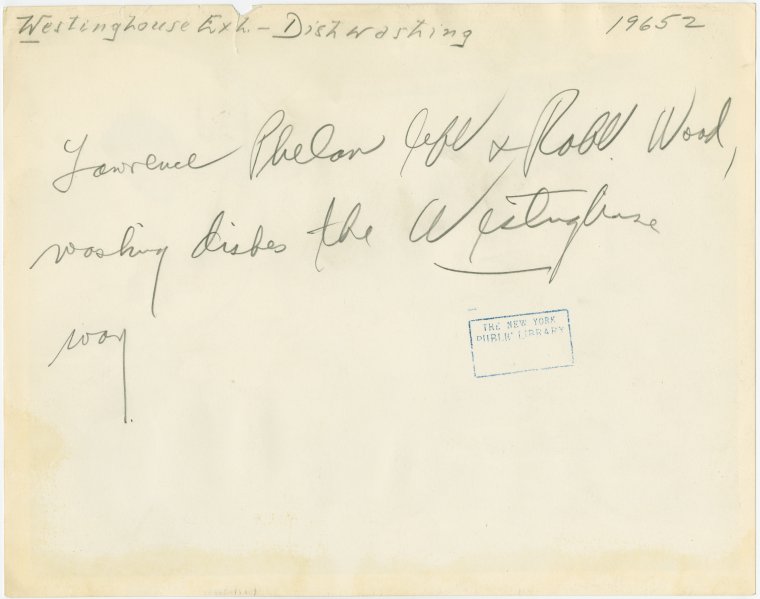 Westinghouse Exh. - Dishwashing 19652
Lawrence Phelan left & Robt. Wood,
washing dishes the Westinghouse
way.
THE NEW YORK
PUBLIC LIBRARY